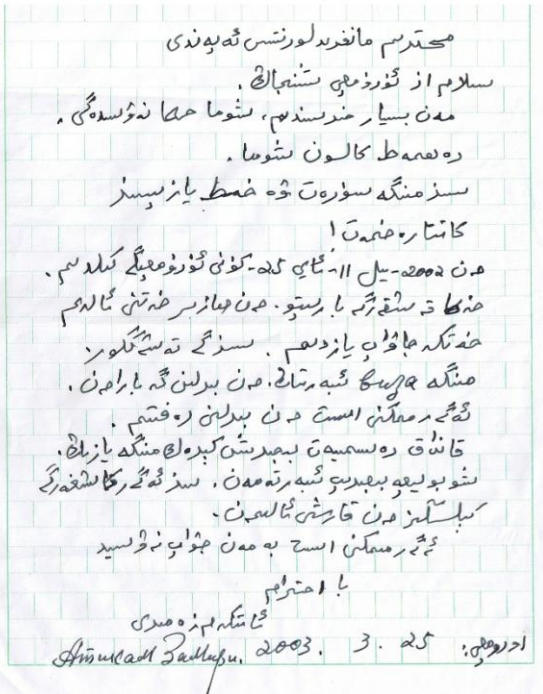 محترم مانفرىد لورنتس ئەپەندى
سلام از ئۈرۈمچى شىنجاڭ.
مەن بسيار خرسندىم، شوما خط نەۋىسىدگى.
دەھەمەط كالسون شوما.
سىز مىنگە سۈرەت ۋە خەط يازسىىز
كاتتا رەخمەت!
مەن 2002-يىل 11-ئاي 25-كۈنى ئۈرۈمچىگە كىلدىم.
خەط قەشقەرگە بارىپتۇ. مەن ھازىر خەتنى ئالدىم
خەتكە جاۋاپ يازدىم. سىزگە تەشەككۈر
مىنگە Buza ئىبەرتىڭ. مەن بىرلىن گە بارامەن.
ئەگەر ممكىن است مەن بىرلىن رەفتىم.
قانداق رەسمىيەت بېجىرىش كېرەك مىنگە يازىڭ.
شۇ بويىچە بېجىرىپ ئىبەرتەمەن. سىز ئەگەر كاشغەرگە
كېلىسىڭىز مەن قارشى ئالىمەن.
ئەگەر ممكىن است بە مەن جۋاپ نەۋىسىد
با احترام
ئۈرۈمچى. 2003. 3. 25